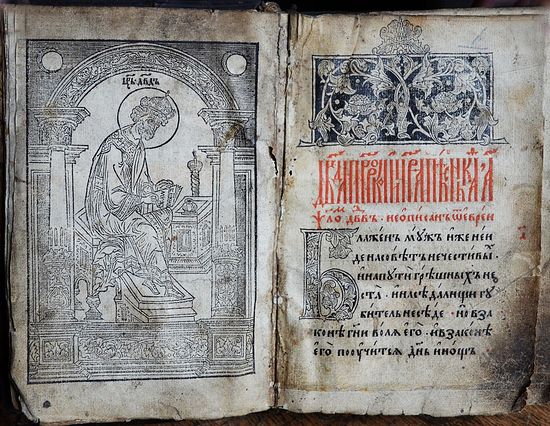 цр҃ь двд҃ъ
ѱло́м двв҃ъ · неѡписанъ ѿ еврей
Блаженъ мужъ иже неи
де на совѣтъ нечестивы
и на пути грѣшныхъ не
ста · и на сѣдалищи гу
битель не сѣде · но в за
конѣ гн҃и воля его · и в законѣ
его поучится дн҃ь и нощь